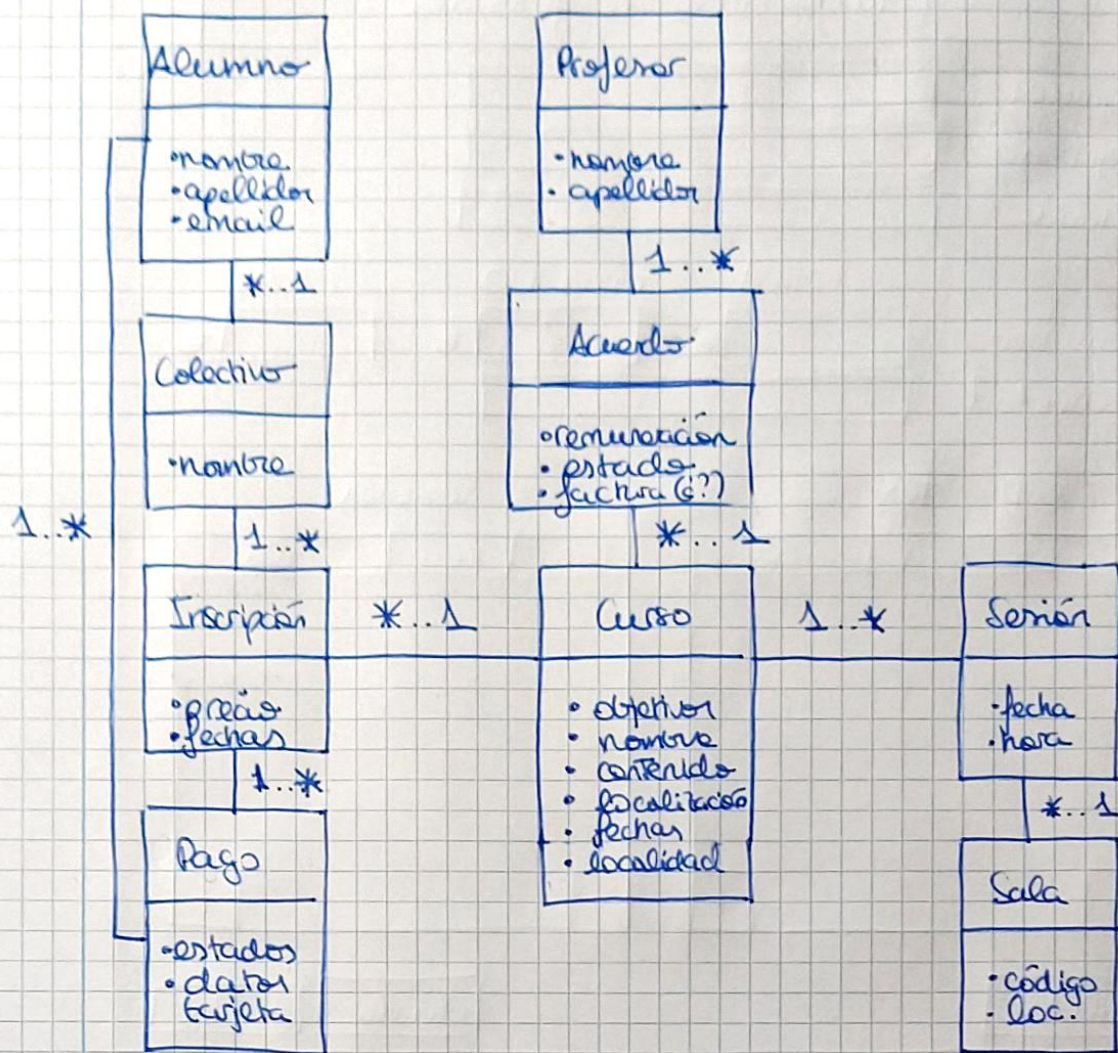 Alumno
•nombre
•apellidos
•email
*..1
Colectivo
•nombre
1..*
1..*
Inscripción
•precio
•fechas
1..*
Pago
•estados
•datos
tarjeta
Profesor
•nombre
•apellidos
1..*
Acuerdo
•remuneración
•estado
•factura (¿?)
*..1
*..1
Curso
•objetivos
•nombre
•contenido
•focalización
•fechas
•localidad
1..*
Sesión
•fecha
•hora
*..1
Sala
•código
•loc.